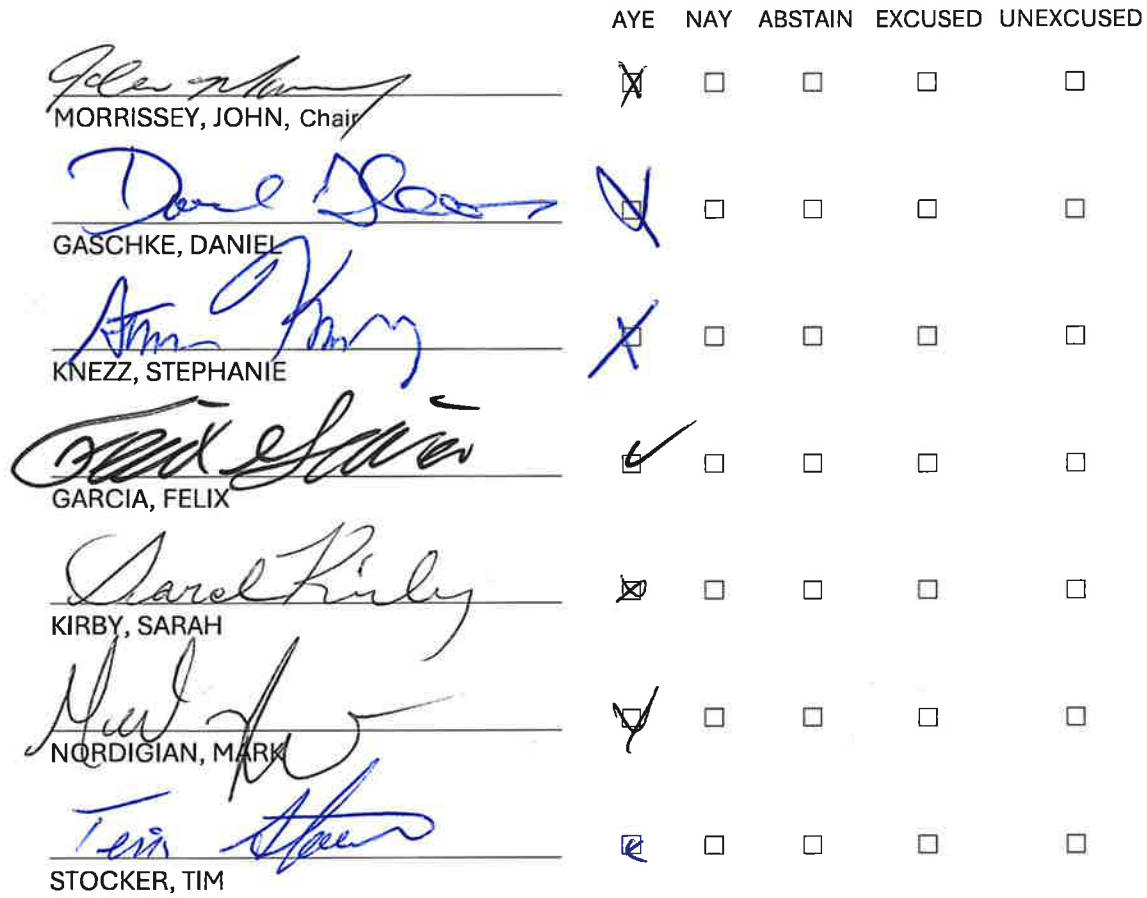 AYE NAY ABSTAIN EXCUSED UNEXCUSED
MORRISSEY, JOHN, Chair
GASCHKE, DANIEL
KNEZZ, STEPHANIE
Felix Garcia
GARCIA, FELIX
Sarah Kirby
KIRBY, SARAH
NORDIGIAN, MARK
STOCKER, TIM